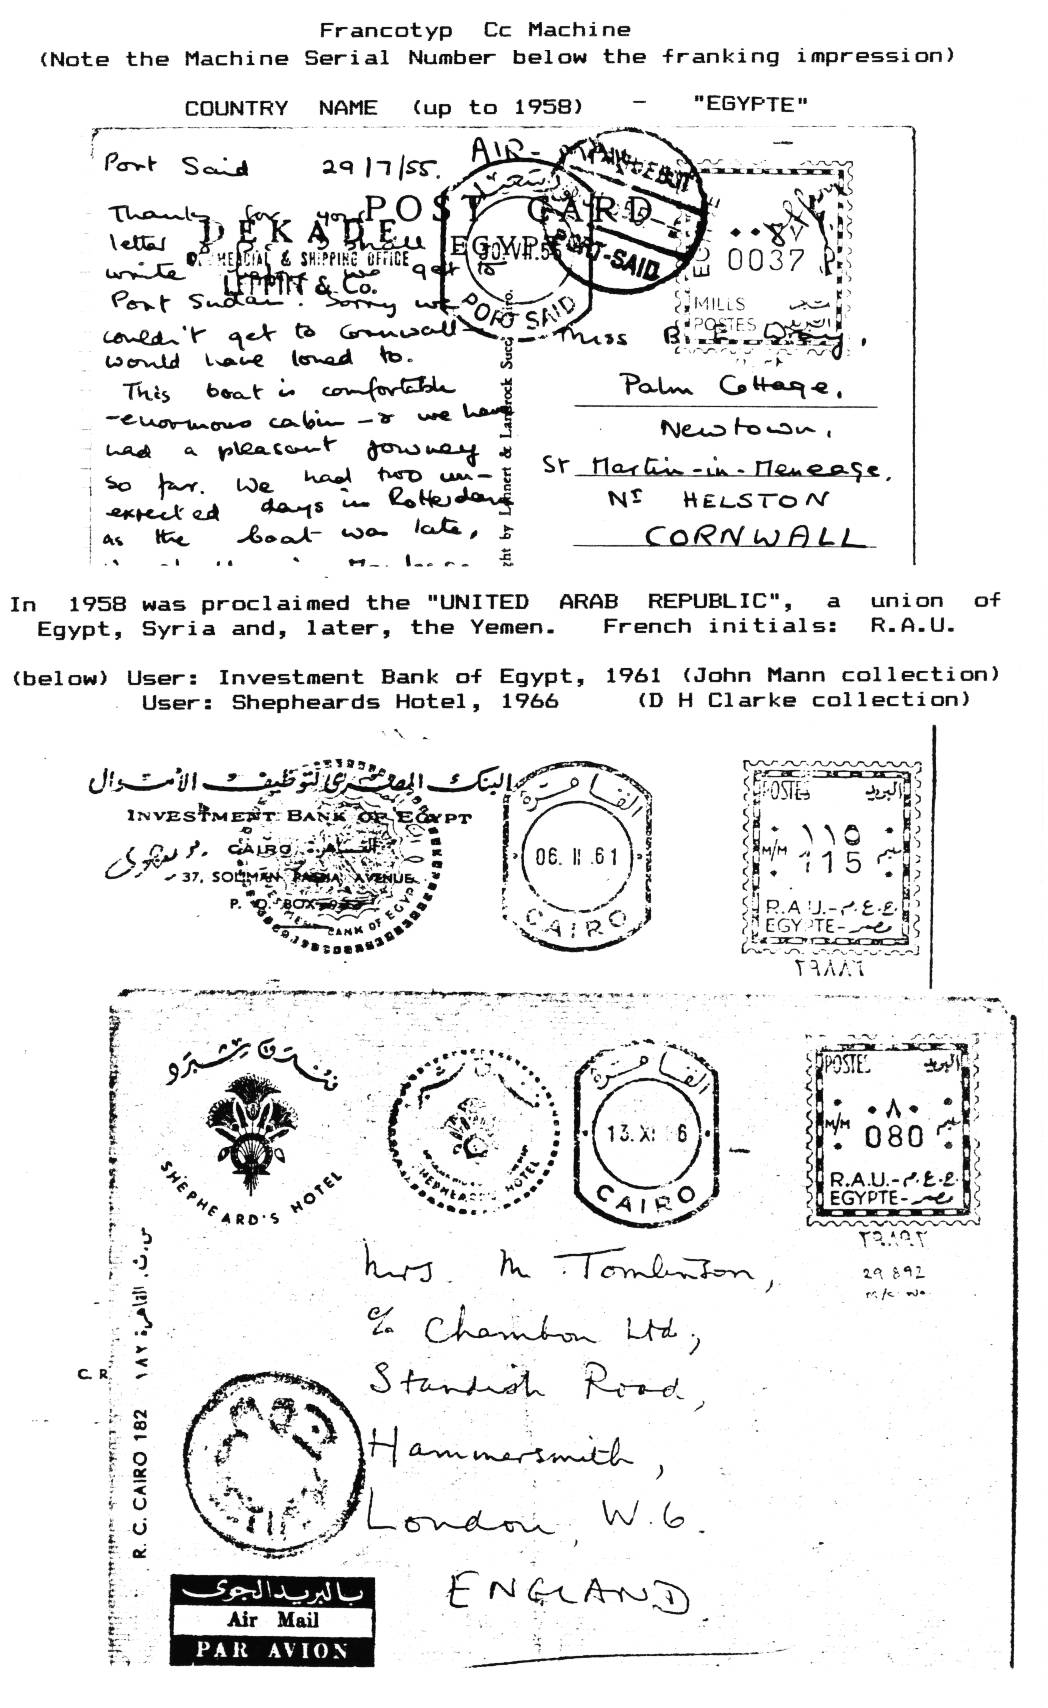 Francotyp Cc Machine
(Note the Machine Serial Number below the franking impression)
COUNTRY NAME (up to 1958) - "EGYPTE"
Port Said 29/7/55.
AIR-
POST CARD
Thanks for your
DEKADE
letter & I shall
COMMERCIAL & SHIPPING OFFICE
write before we get to
LEPPIN & Co.
Port Sudan. Sorry we
couldn't get to Cornwall -
would have loved to.
This boat is comfortable
- enormous cabin - & we have
had a pleasant journey
so far. We had two un-
expected days in Rotterdam
as the boat was late,
EGYPT
30.VII.55
PORT SAID
PORT-SAID
0037
MILLS
POSTES
Miss B. E.
Palm Cottage,
Newtown,
St Martin-in-Meneage,
Nr HELSTON
CORNWALL
ght by Lehnert & Landrock Succ. Cairo.
In 1958 was proclaimed the "UNITED ARAB REPUBLIC", a union of
Egypt, Syria and, later, the Yemen. French initials: R.A.U.
(below) User: Investment Bank of Egypt, 1961 (John Mann collection)
User: Shepheards Hotel, 1966 (D H Clarke collection)
البنك المصرى لتوظيف الأموال
INVESTMENT BANK OF EGYPT
CAIRO
37, SOLIMAN PASHA AVENUE
P. O. BOX
INVESTMENT BANK OF EGYPT
القاهرة
06. II .61
CAIRO
POSTES البريد
١١٥
M/M 115 مليم
R.A.U.-ج.ع.م
EGYPTE-مصر
٢٩٨٨٦
فندق شبرد
SHEPHEARD'S HOTEL
SHEPHEARD'S HOTEL
القاهرة
13. XI 6
CAIRO
POSTES البريد
٠٨٠
M/M 080 مليم
R.A.U.-ج.ع.م
EGYPTE-مصر
٢٩٨٩٢
29892
m/c No
Mrs. M. Tomlinson,
c/o Chambon Ltd.,
Standish Road,
Hammersmith,
London, W.6.
ENGLAND
C. R
R. C. CAIRO 182 س.ت. القاهرة ١٨٢
بالبريد الجوى
Air Mail
PAR AVION